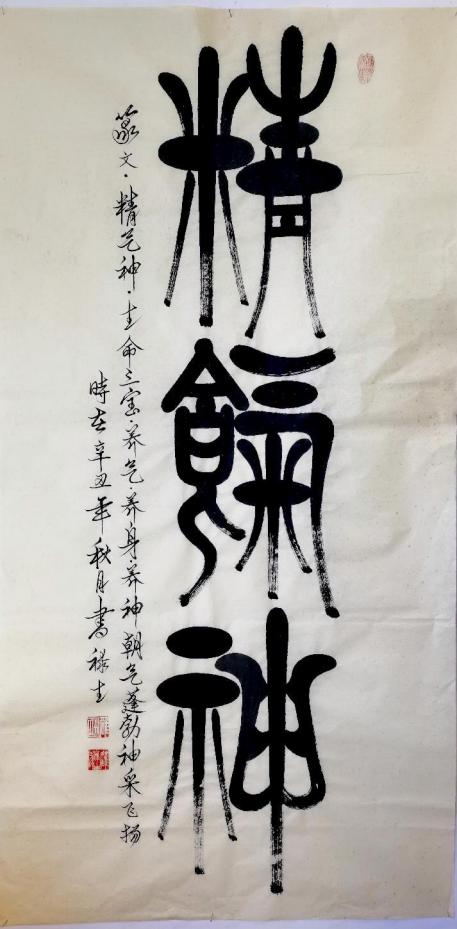 精餼神
篆文·精气神·生命三宝·养气·养身·养神朝气蓬勃神采飞扬
時在辛丑年秋月書禄生